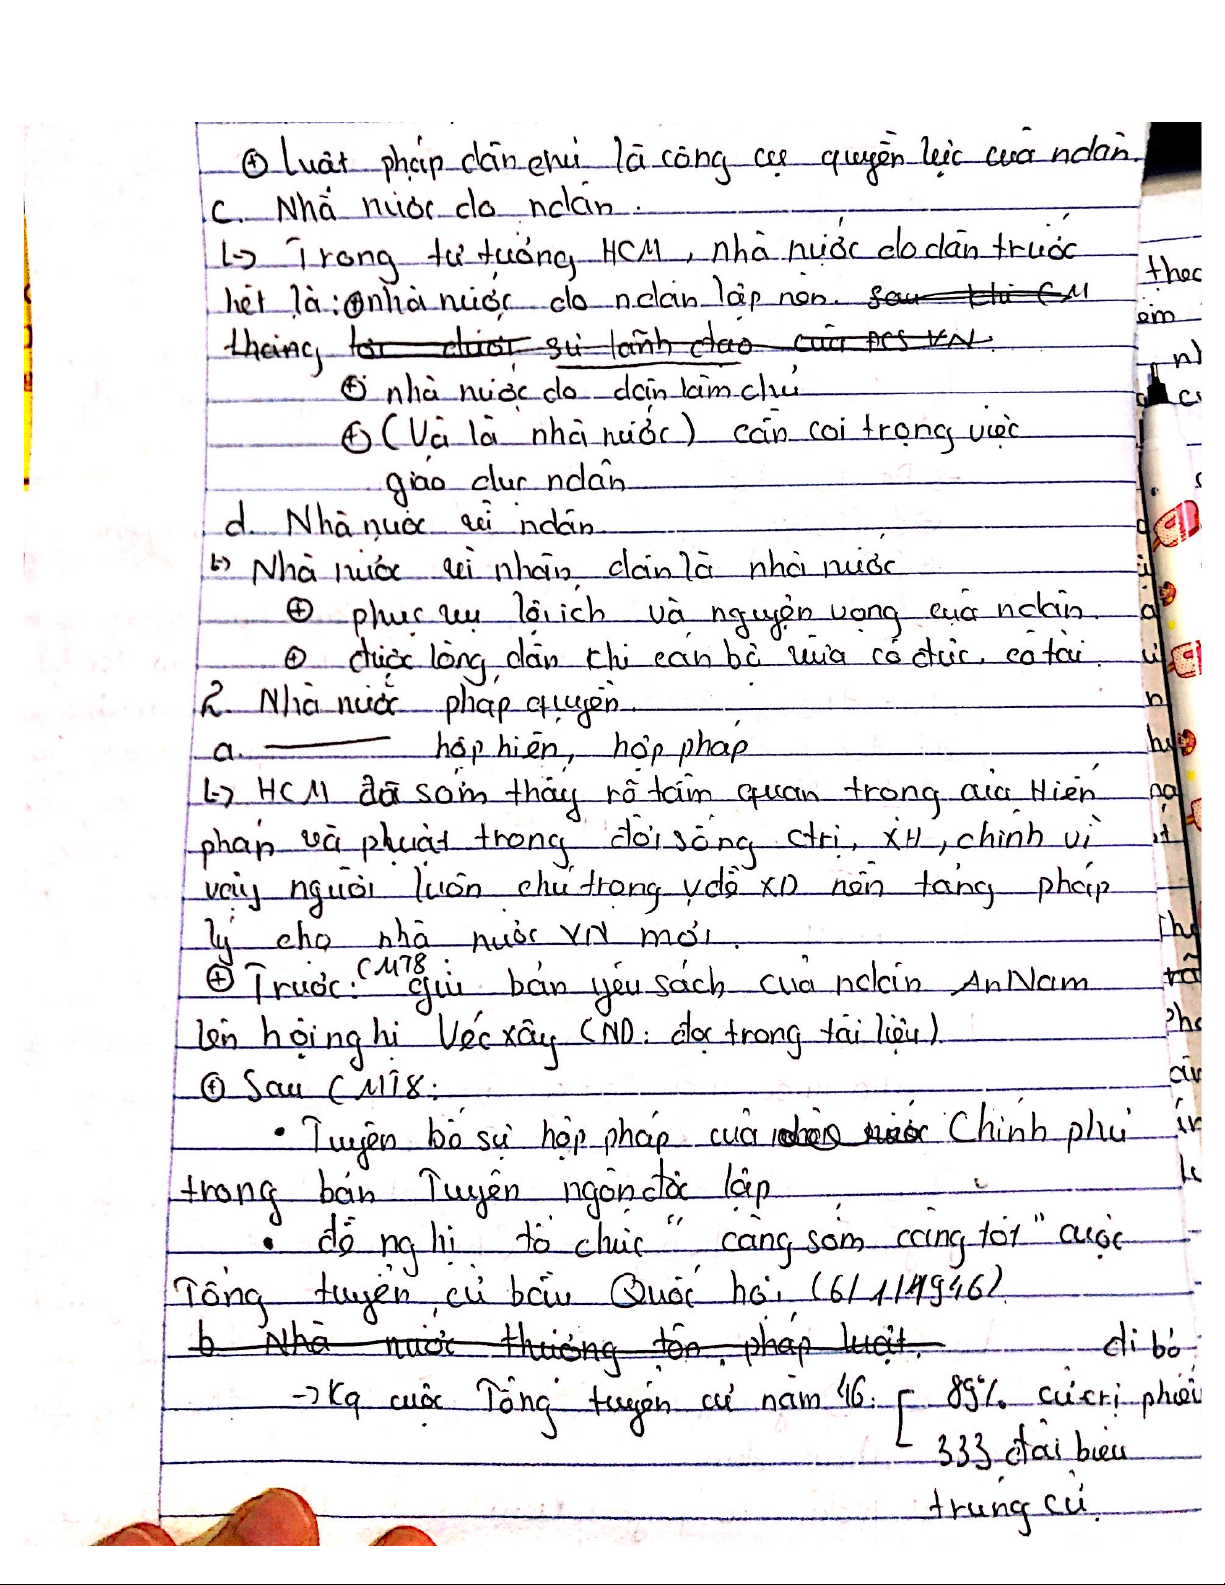 ⊕ Luật pháp dân chủ là công cụ quyền lực của ndân.
c. Nhà nước do ndân.
↳ Trong tư tưởng HCM, nhà nước do dân trước
hết là: ⊕ nhà nước do ndân lập nên. sau khi CM
tháng lợi dưới sự lãnh đạo của ĐCS VN.
⊕ nhà nước do dân làm chủ
⊕ (Và là nhà nước) cần coi trọng việc
giáo dục ndân
d. Nhà nước vì ndân
↳ Nhà nước vì nhân dân là nhà nước
⊕ phục vụ lợi ích và nguyện vọng của ndân.
⊕ được lòng dân thì cán bộ vừa có đức, có tài.
2. Nhà nước pháp quyền.
a. ——— hợp hiến, hợp pháp
↳ HCM đã sớm thấy rõ tầm quan trọng của Hiến
pháp và pluật trong đời sống ctrị, XH, chính vì
vậy người luôn chú trọng vđề XD nền tảng pháp
lý cho nhà nước VN mới.
⊕ Trước CMT8: gửi bản yêu sách của ndân An Nam
lên hội nghị Véc xây (ND: đọc trong tài liệu).
⊕ Sau CMT8:
• Tuyên bố sự hợp pháp của nhà nước Chính phủ
trong bản Tuyên ngôn độc lập
• đề nghị tổ chức "càng sớm càng tốt" cuộc
Tổng tuyển cử bầu Quốc hội (6/1/1946)
b Nhà nước thượng tôn pháp luật. đi bỏ
→ Kq cuộc Tổng tuyển cử năm 46: [ 89% cử tri phiếu
333 đại biểu
trúng cử.